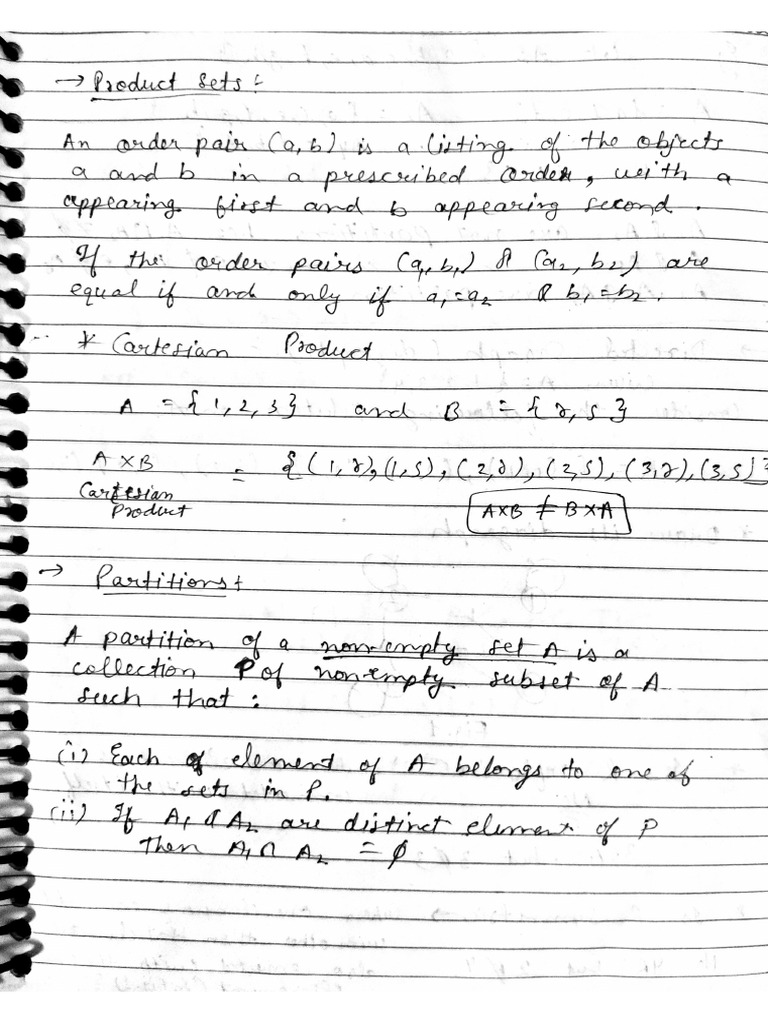 → Product Sets :-
An order pair (a, b) is a listing of the objects
a and b in a prescribed order, with a
appearing first and b appearing second.
If the order pairs (a₁, b₁) & (a₂, b₂) are
equal if and only if a₁ = a₂ & b₁ = b₂.
* Cartesian Product
A = {1, 2, 3} and B = {r, s}
A × B = {(1, r), (1, s), (2, r), (2, s), (3, r), (3, s)}
Cartesian
Product
A×B ≠ B×A
→ Partitions :-
A partition of a non-empty set A is a
collection P of non-empty subset of A
such that :
(i) Each of element of A belongs to one of
the sets in P.
(ii) If A₁ & A₂ are distinct element of P
then A₁ ∩ A₂ = ϕ